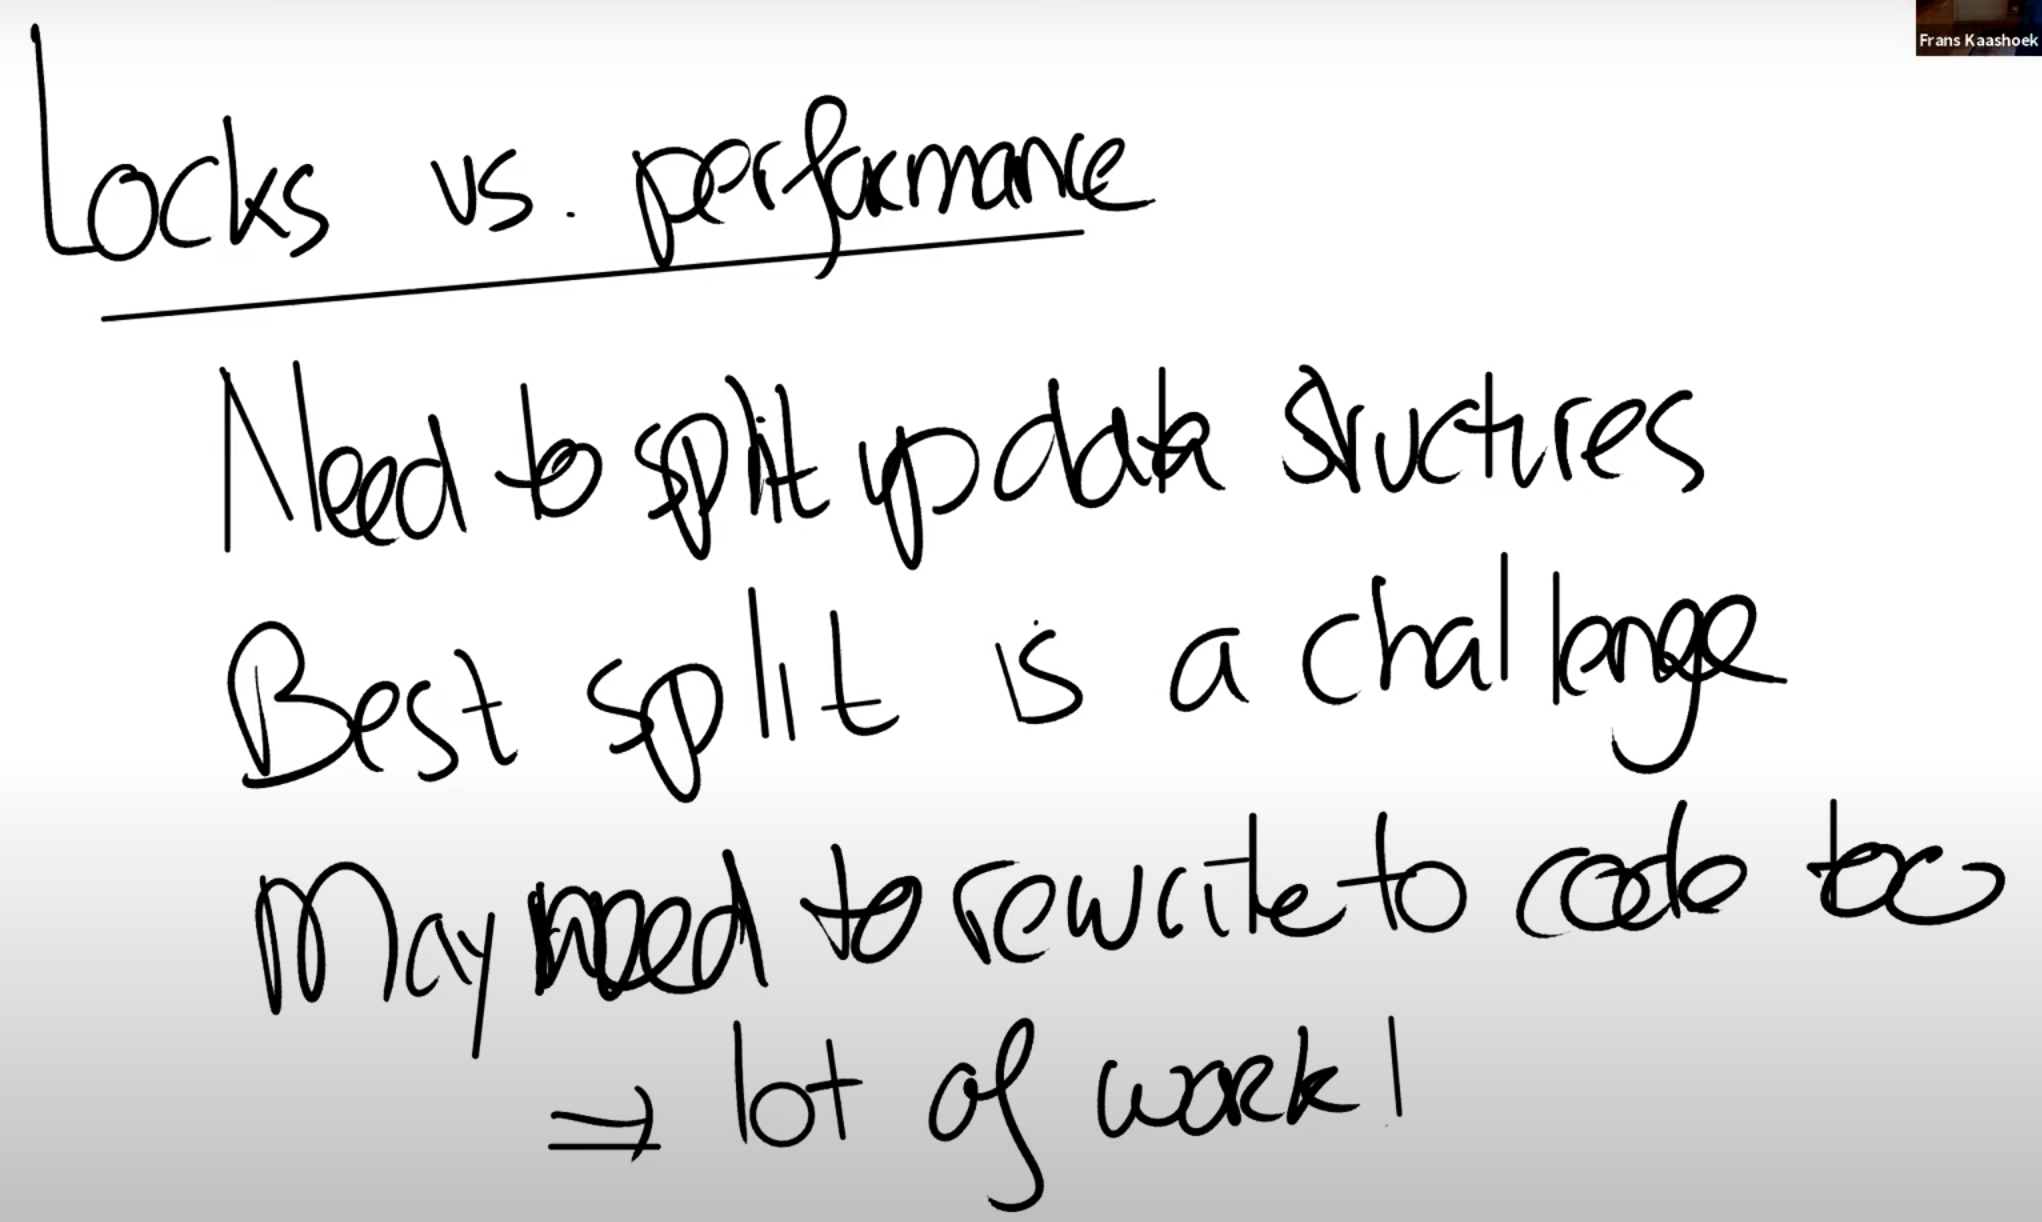 Frans Kaashoek
Locks vs. performance
Need to split up data structures
Best split is a challenge
May need to rewrite to code too
⇒ lot of work!